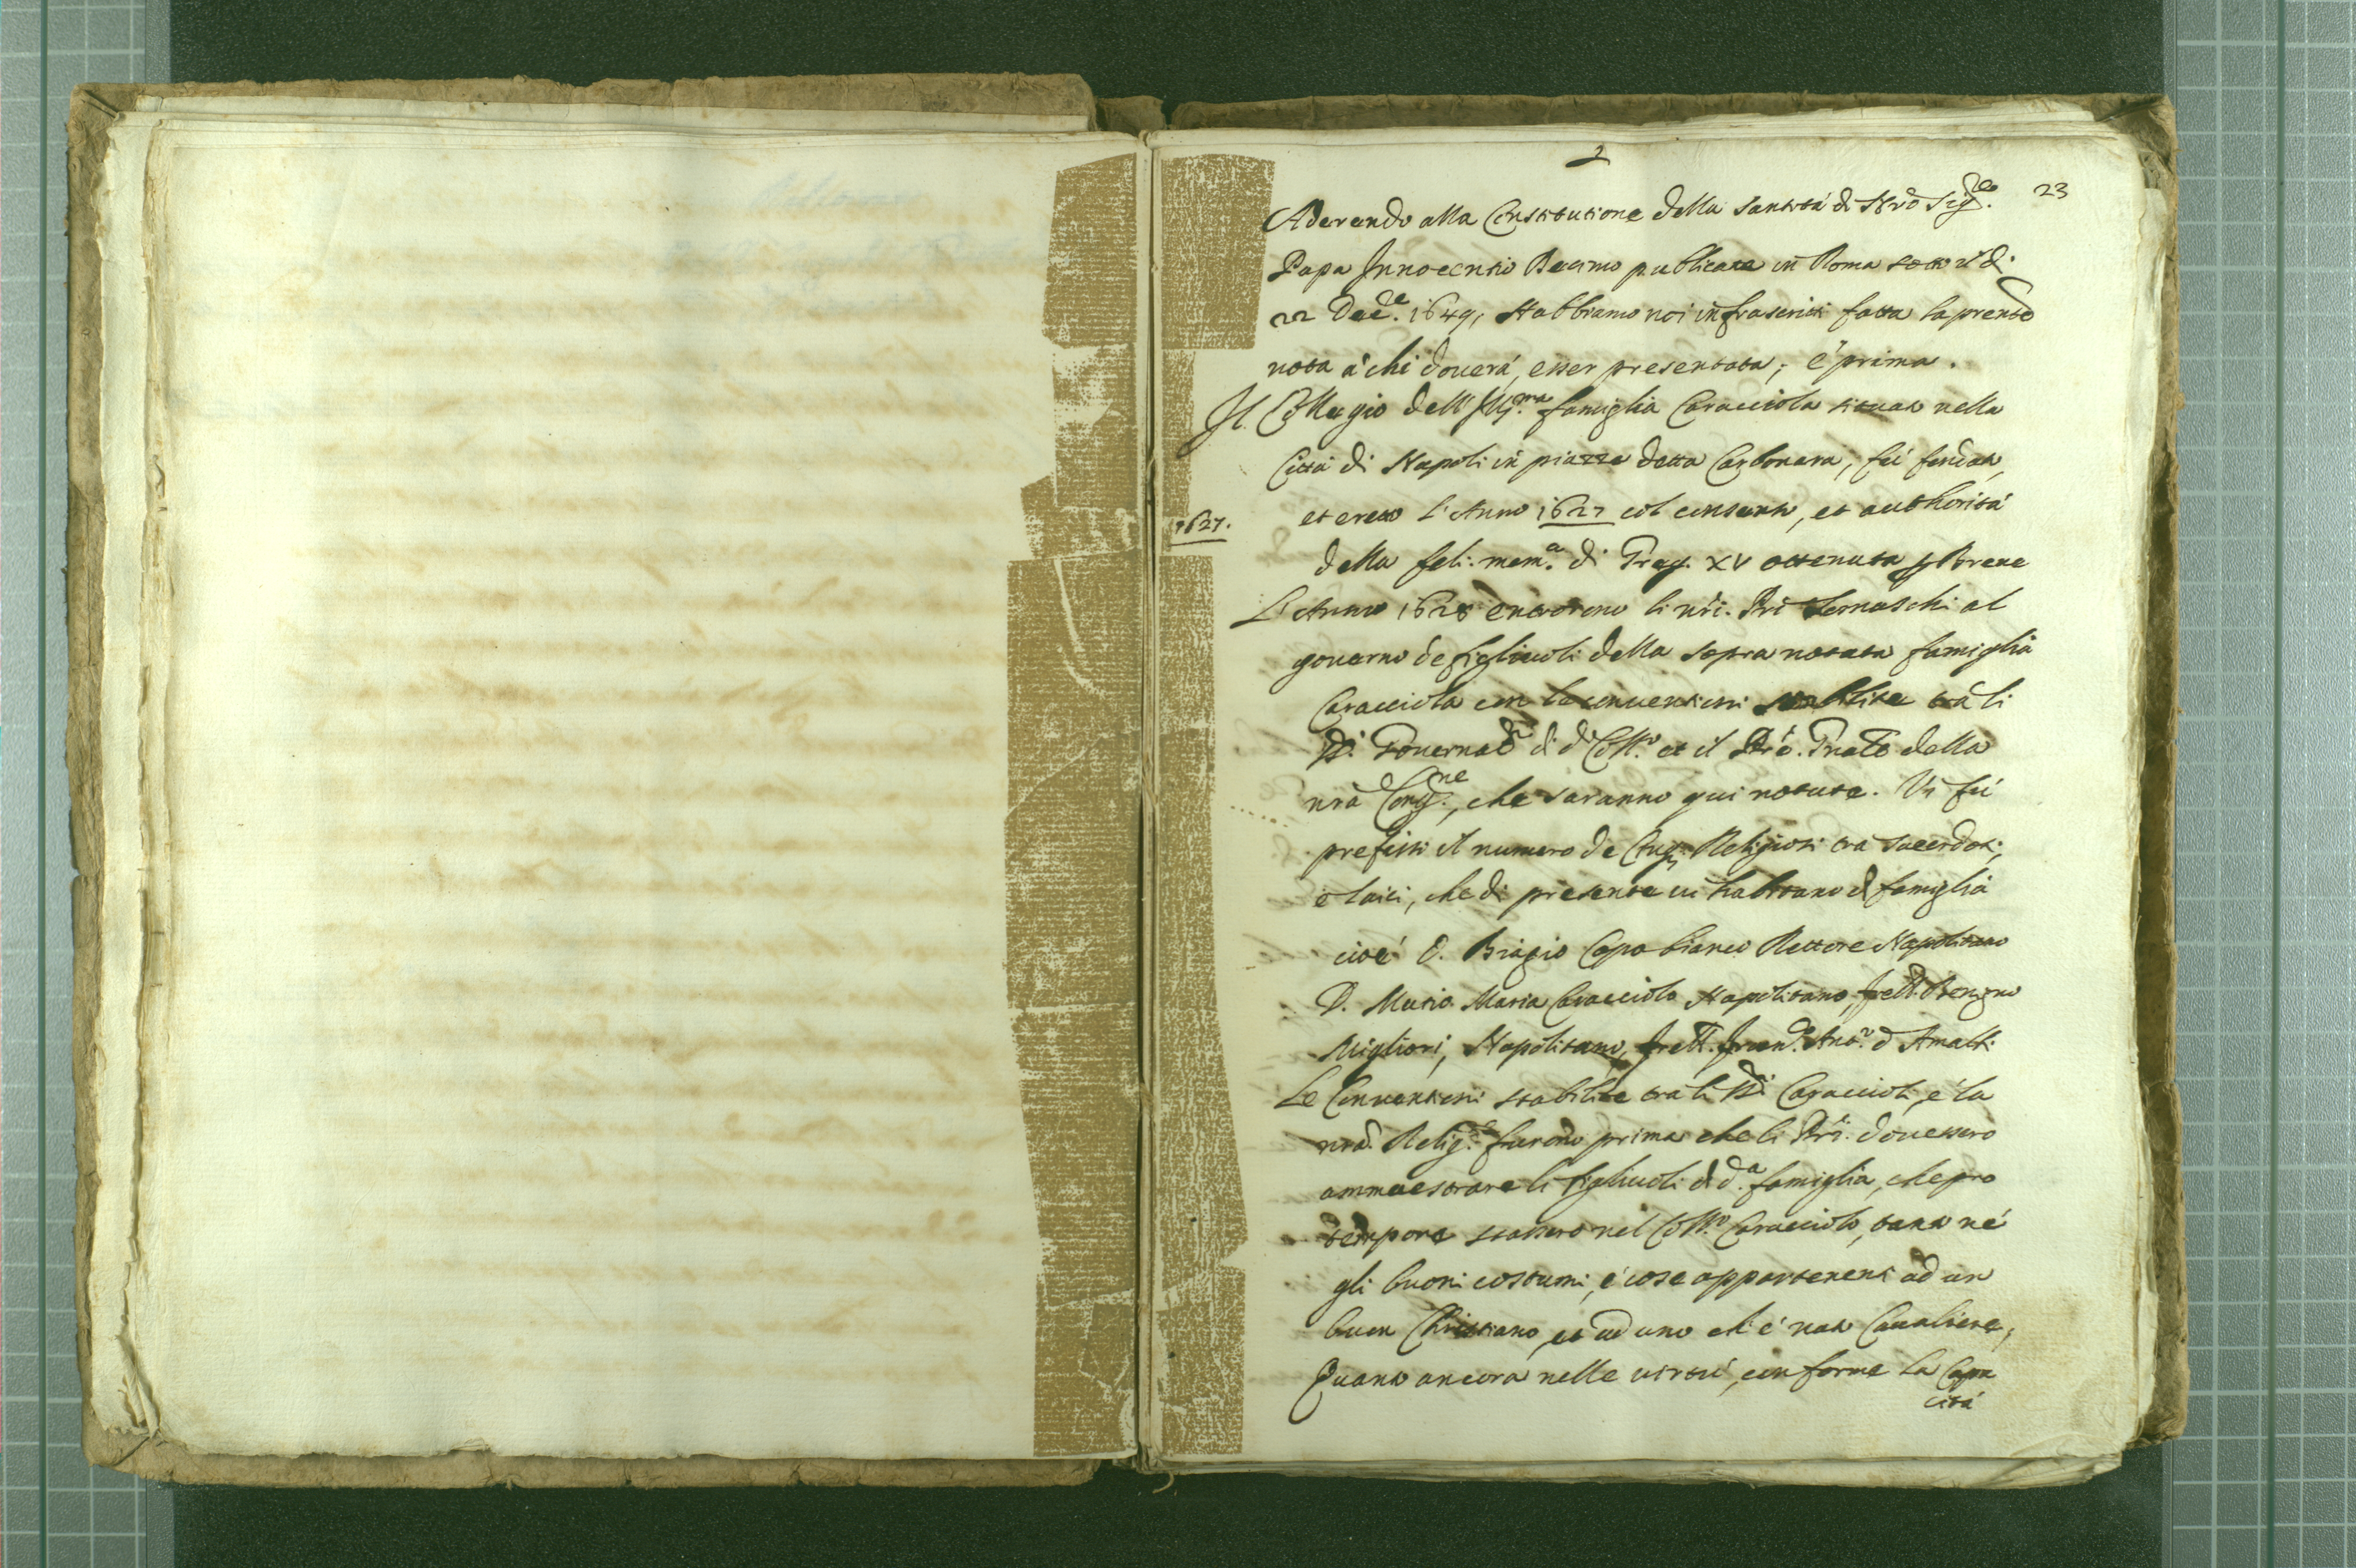 2
23
Aderendo alla Constitutione della santità di Nrõ Sig.re
Papa Innocentio Decimo publicata in Roma sotto li
22 Dec.e 1649, Habbiamo noi infrascritti fatta la prẽnte
nota à chi douerà, esser presentata, è prima.
Il Collegio dell' Ill.ma famiglia Caracciola situato nella
Città di Napoli in piazza detta Carbonara, fù fundato,
1627.
et eretto l'Anno 1627 col consenso, et authorità
della feli: mem.a di Greg. XV ottenuta p Breue
L'Anno 1628 entrorono li nrĩ. Prĩ Somaschi al
gouerno de figliuoli della sopra notata famiglia
Caracciola con le conuentioni stabilite trà li
SS.ri Gouernad.ri di d.o Coll.o et il Prẽ. Gñale della
nrã Cong.ne, che saranno qui notate. Vi fù
prefisso il numero de Religiosi trà sacerdoti,
è laici, che di presente ui habitano di famiglia
cioè D. Biagio Capobianco Rettore Napolitano
D. Mutio Maria Caracciolo Napolitano, frell. Benigno
Migliori, Napolitano, frell. Ant.o d'Amalfi
Le Conuentioni stabilite tra li SS.ri Caraccioli, è la
nrã. Relig.e furono prima che li Prĩ. douessero
ammaestrare li figliuoli di d.a famiglia, che pro
tempore stassero nel Coll.o Caracciolo, tanto nè
gli buoni costumi, è cose appartenenti ad un
buon Christiano, et ad uno ch'è nato Caualiere,
Quanto ancora nelle uirtù, conforme la Capa
cità